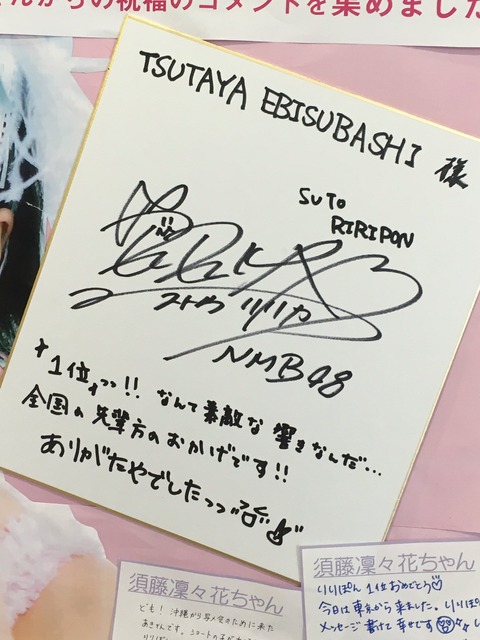 んからの祝福のコメントを集めました
TSUTAYA EBISUBASHI 様
SUTO
RIRIPON
ストウ リリカ
NMB48
"1位"っっ!! なんて素敵な響きなんだ…
全国の先輩方のおかげです!!
ありがたやでしたっっ
須藤凜々花ちゃん
ども! 沖縄から写人会のために来た
あきんです。
須藤凜々花ちゃん
りりぽん 1位おめでとう♡
今日は東京から来ました。
メッセージ書けて幸せです